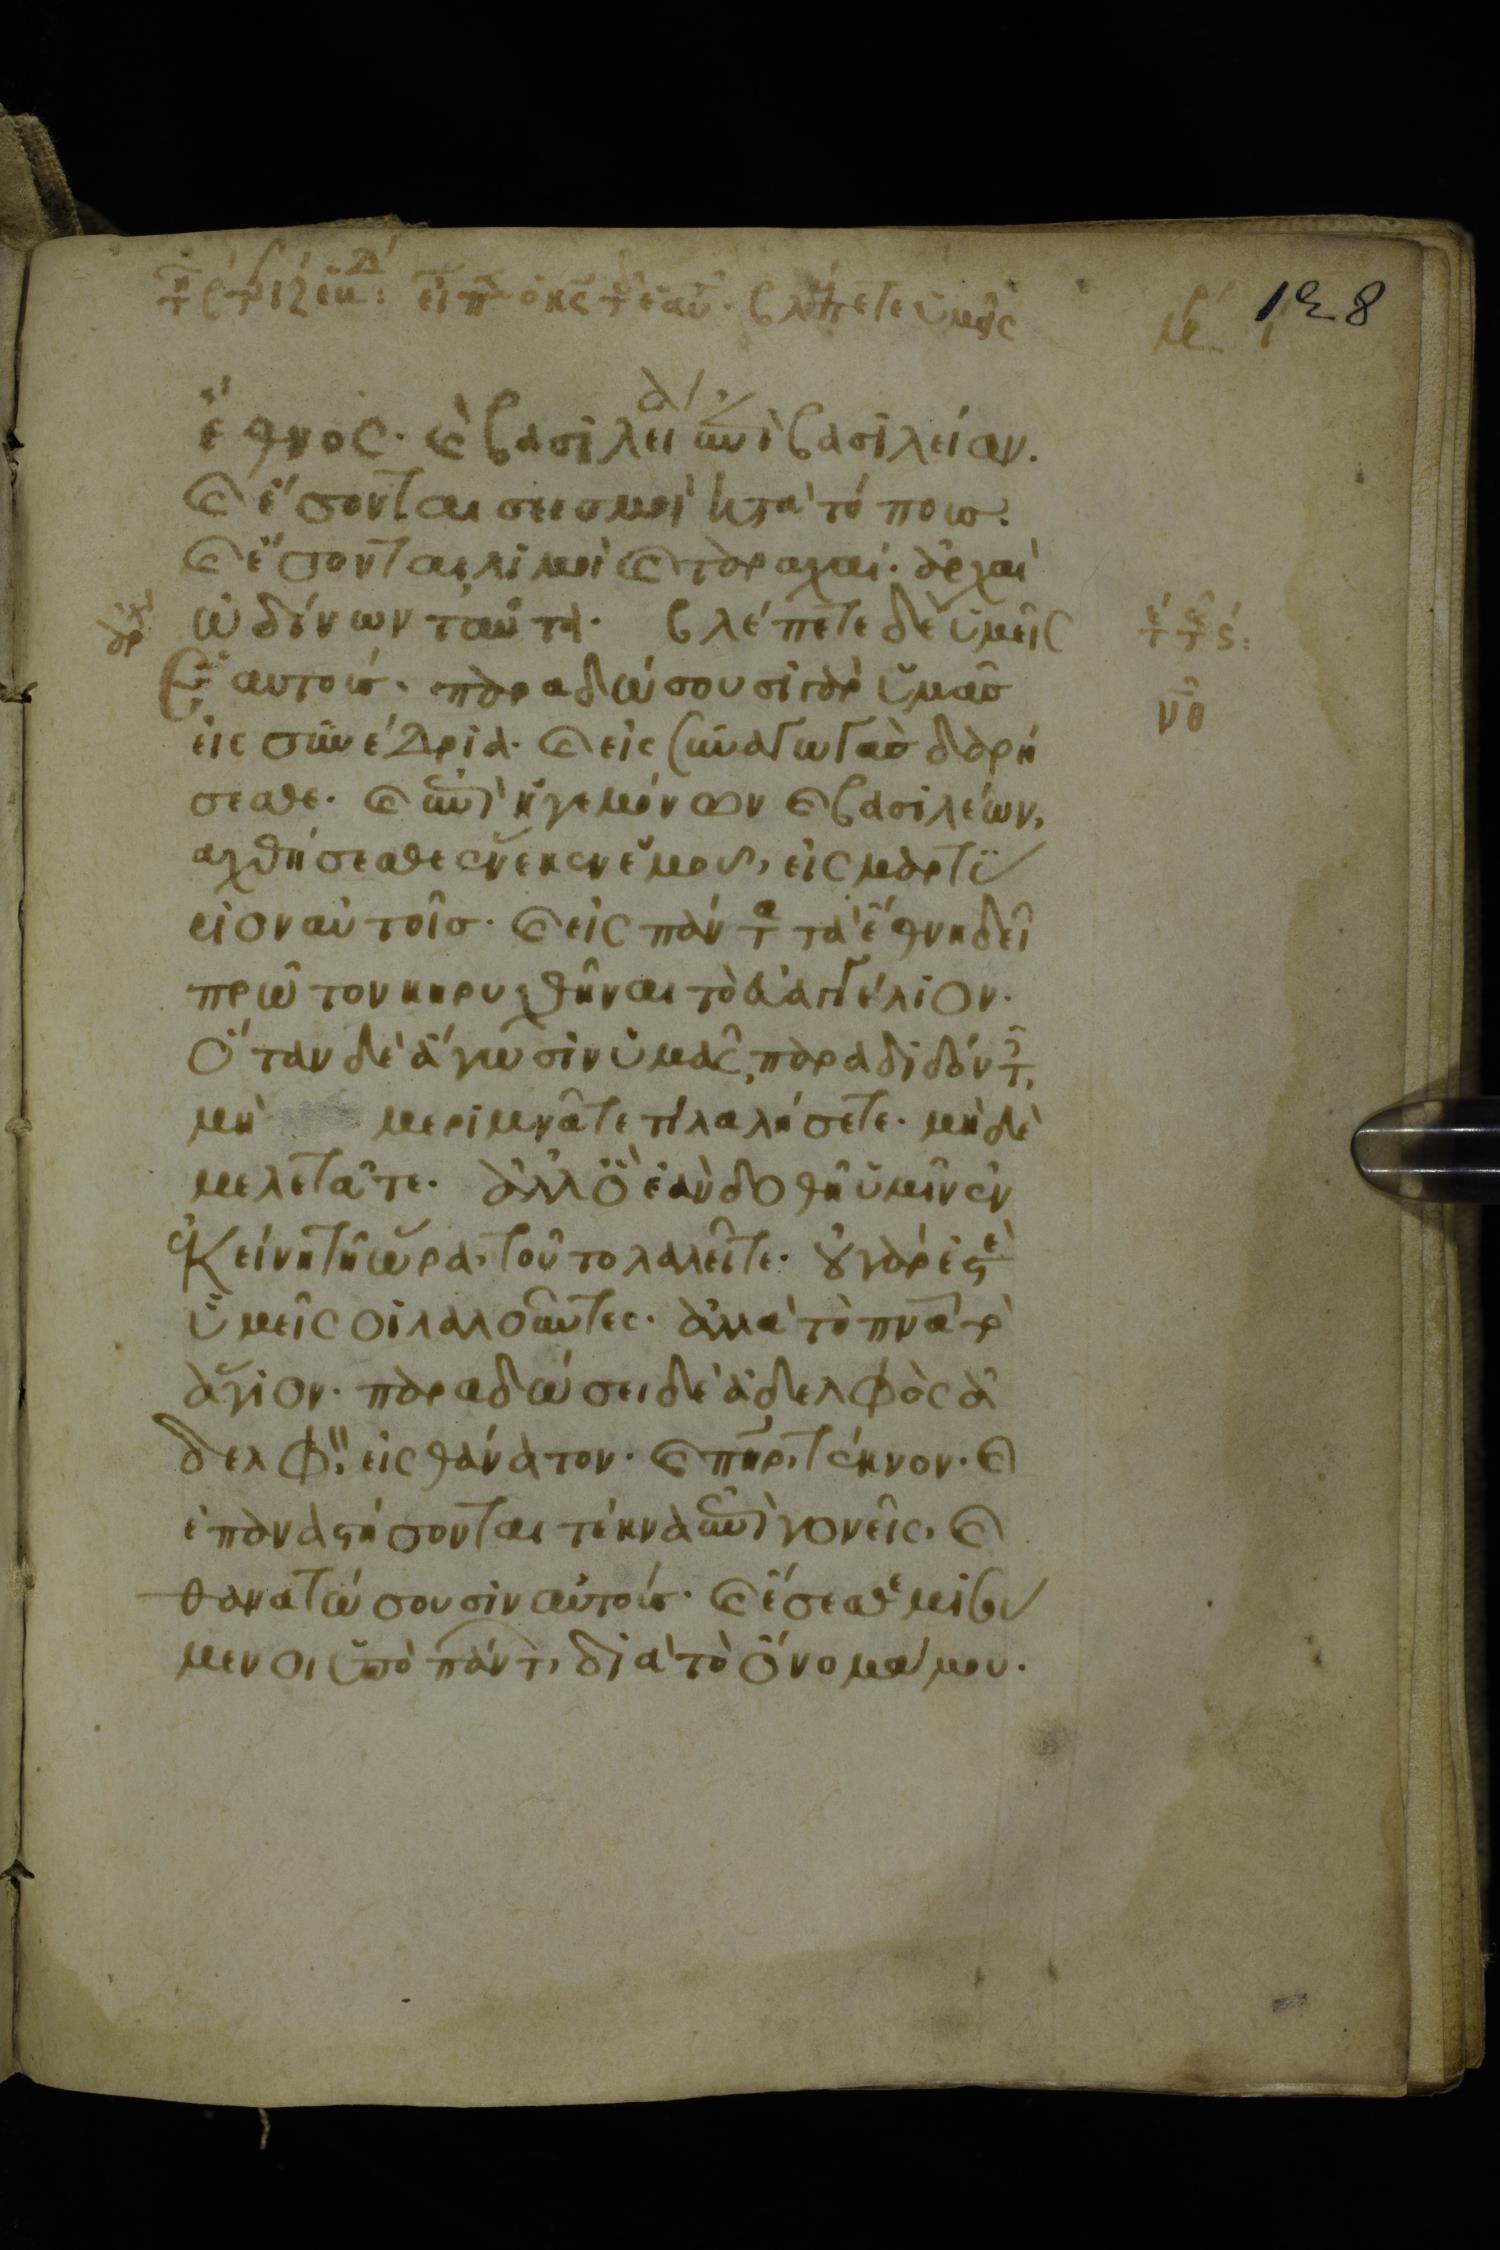 128
ἔθνος· καὶ βασιλεία ἐπὶ βασιλείαν·
καὶ ἔσονται σεισμοὶ κατὰ τόπους·
καὶ ἔσονται λιμοὶ καὶ ταραχαί· ἀρχαὶ
ὠδίνων ταῦτα· βλέπετε δὲ ὑμεῖς
Ἑαυτούς· παραδώσουσι γὰρ ὑμᾶς
εἰς συνέδρια· καὶ εἰς συναγωγὰς δαρή
σεσθε· καὶ ἐπὶ ἡγεμόνων καὶ βασιλέων,
αχθήσεσθε ἕνεκεν ἐμοῦ, εἰς μαρτύ
ριον αὐτοῖς· καὶ εἰς πάντα τὰ ἔθνη δεῖ
πρῶτον κηρυχθῆναι τὸ εὐαγγέλιον·
Ὅταν δὲ ἄγωσιν ὑμᾶς, παραδιδόντες,
μὴ μεριμνᾶτε τί λαλήσετε· μὴ δὲ
μελετᾶτε· ἀλλ' ὃ ἐὰν δοθῆ ὑμῖν ἐν
ἐκείνη τῆ ὥρα, τοῦτο λαλεῖτε· οὐ γάρ ἐστε
ὑμεῖς οἱ λαλοῦντες· ἀλλὰ τὸ πνα τὸ
ἅγιον· παραδώσει δὲ ἀδελφὸς ἀ
δελφὸν εἰς θάνατον· καὶ πηρ, τέκνον· καὶ
ἐπαναστήσονται τέκνα ἐπὶ γονεῖς, καὶ
θανατώσουσιν αὐτούς· καὶ ἔσεσθε μισού
μενοι ὑπὸ πάντων διὰ τὸ ὄνομά μου·